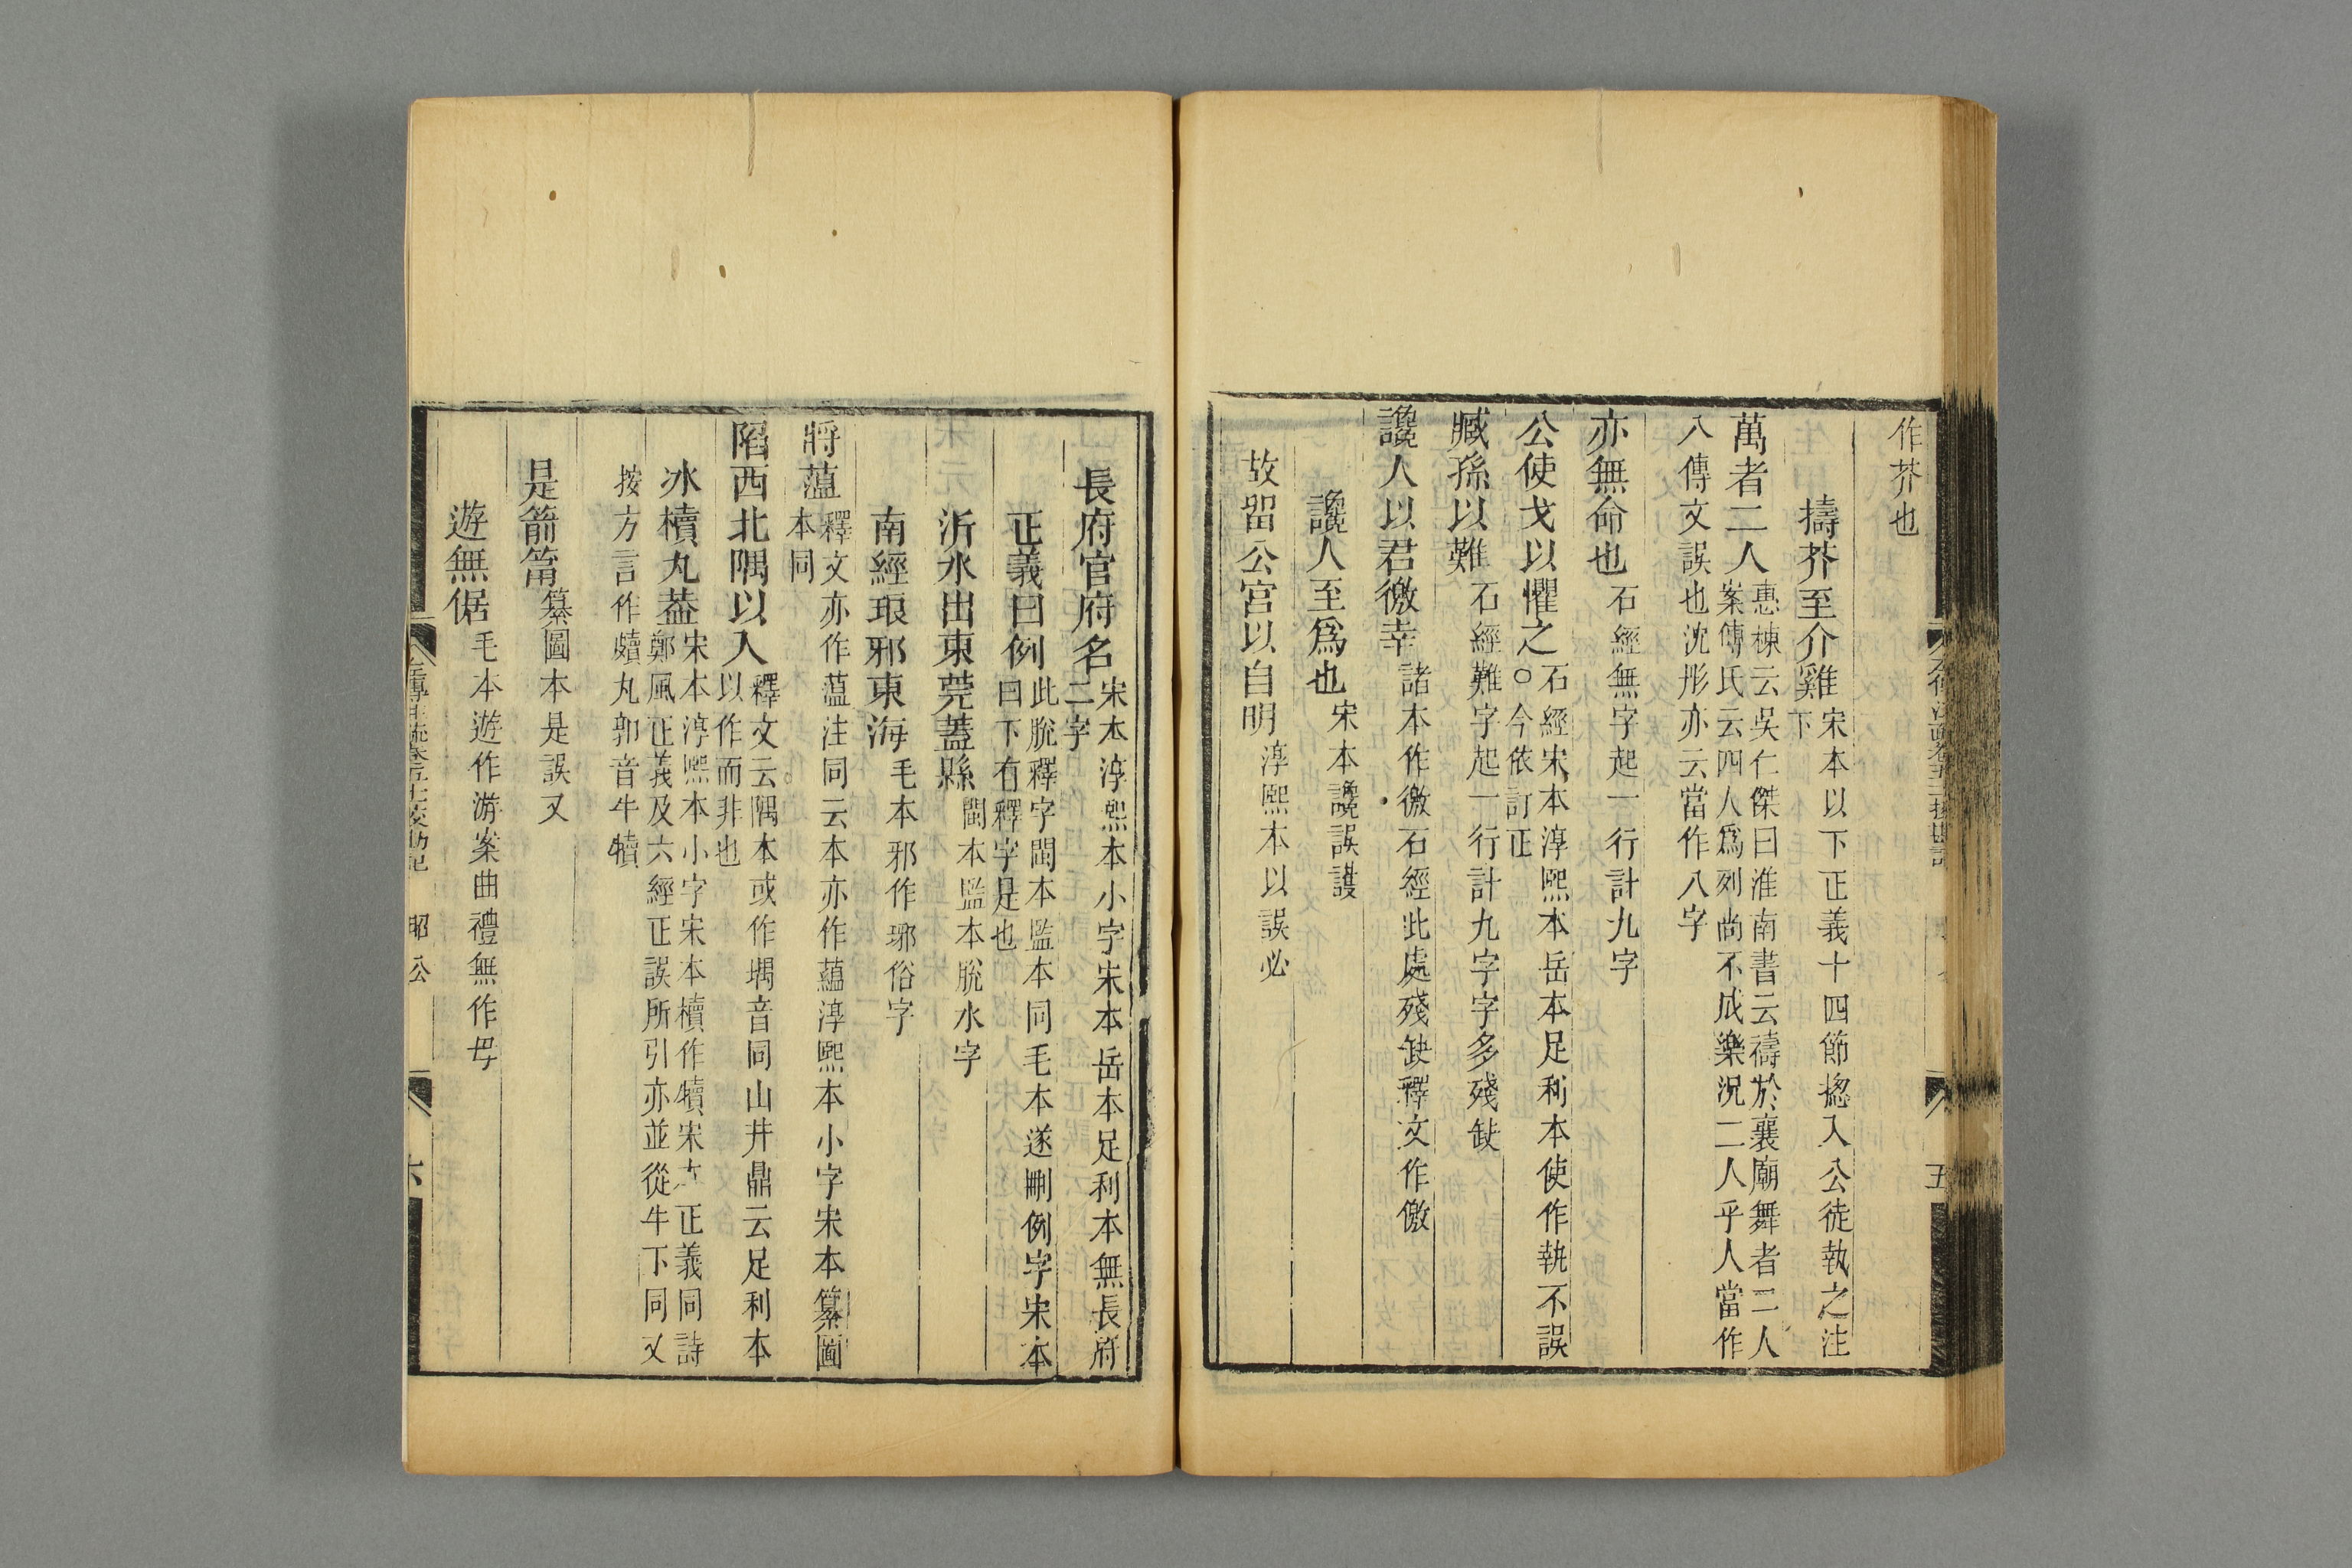 作芥也
擣芥至介雞宋本以下正義十四節揔入公徒執之注下
萬者二人惠棟云吳仁傑曰淮南書云禱於襄廟舞者二人案傅氏云四人爲列尚不成樂況二人乎人當作
八傳文誤也沈彤亦云當作八字
亦無命也石經無字起一行計九字
公使戈以懼之石經宋本淳熙本岳本足利本使作執不誤○今依訂正
臧孫以難石經難字起一行計九字字多殘缺
讒人以君徼幸諸本作徼石經此處殘缺釋文作儌
讒人至爲也宋本讒誤護
故留公宮以自明淳熙本以誤必
五
長府官府名宋本淳熙本小字宋本岳本足利本無長府二字
正義曰例此脫釋字閩本監本同毛本遂刪例字宋本曰下有釋字是也
沂水出東莞蓋縣閩本監本脫水字
南經琅邪東海毛本邪作瑯俗字
將薀釋文亦作薀注同云本亦作蘊淳熙本小字宋本纂圖本同
陷西北隅以入釋文云隅本或作堣音同山井鼎云足利本以作而非也
冰櫝丸葢宋本淳熙本小字宋本櫝作犢宋本正義同詩鄭風正義及六經正誤所引亦並從牛下同又
按方言作皾丸郭音牛犢
是箭筩纂圖本是誤又
遊無倨毛本遊作游案曲禮無作毋
昭公
六